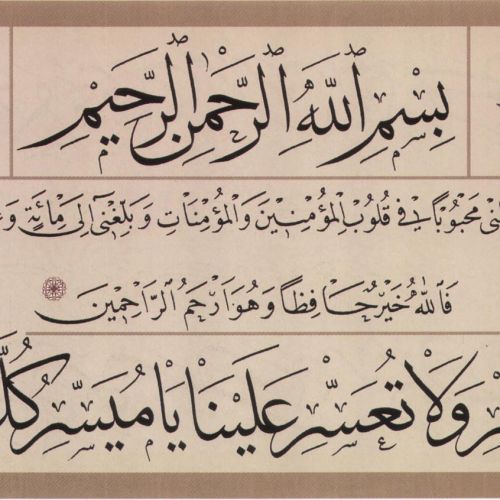 بِسْمِ اللَّهِ الرَّحْمٰنِ الرَّحِيمِ
مَحْبُوبًا فِي قُلُوبِ الْمُؤْمِنِينَ وَالْمُؤْمِنَاتِ وَبَلِّغْنِي إِلَى مِائَةٍ
فَاللَّهُ خَيْرٌ حَافِظًا وَهُوَ أَرْحَمُ الرَّاحِمِينَ
وَلَا تُعَسِّرْ عَلَيْنَا يَا مُيَسِّرَ كُلِّ